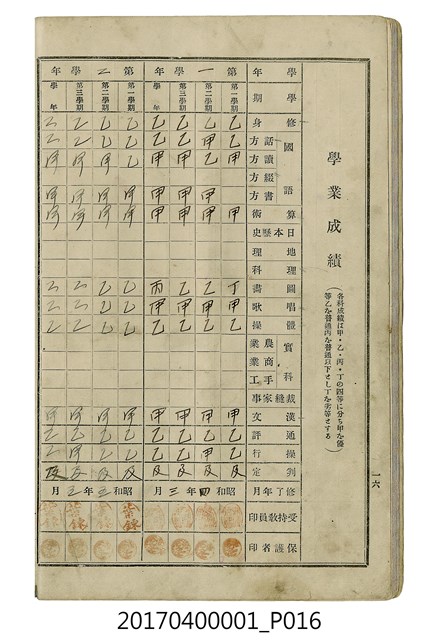 學業成績
(各科成績は甲・乙・丙・丁の四等に分ち甲を優
等乙を普通丙を普通以下とし丁を劣等とする
學年 第一學年 第二學年
學期 第一學期 第二學期 第三學期 學年 第一學期 第二學期 第三學期 學年
修身 乙 乙 乙 乙 乙 乙 乙 乙
國語
話方 乙 甲 乙 乙 乙 乙 乙 乙
讀方 甲 乙 甲 甲 乙 甲 甲 甲
綴方
書方 甲 甲 甲 甲 甲 甲 甲
算術 甲 甲 甲 甲 甲 甲 甲 甲
日本歷史
地理
理科
圖畫 丁 乙 乙 丙 乙 乙 乙 乙
唱歌 甲 甲 甲 甲 乙 乙 乙 乙
體操 乙 乙 乙 乙 乙 乙 乙 乙
實科
農業
商業
手工
裁縫家事
漢文 甲 甲 甲 甲 甲 甲 甲 甲
通評 乙 乙 乙 乙 乙 乙 乙 乙
操行 乙 乙 乙 乙 乙 乙 甲 乙
判定 及 及 及 及 及 及 及 及
修了年月 昭和四年三月 昭和
受持敎員印
保護者印
一六
20170400001_P016